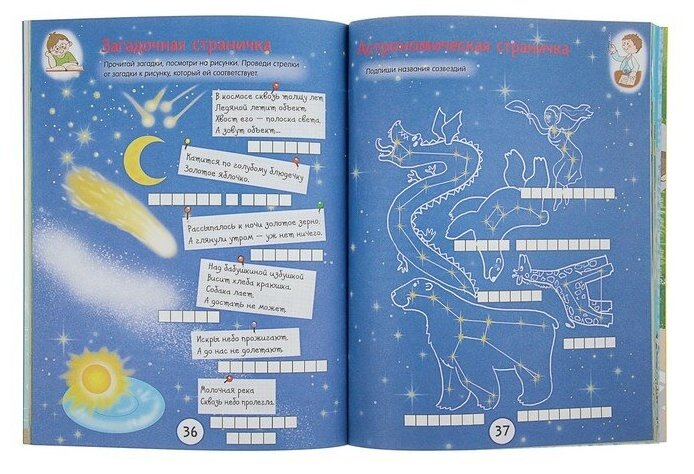 Загадочная страничка
Прочитай загадки, посмотри на рисунки. Проведи стрелки
от загадки к рисунку, который ей соответствует.
В космосе сквозь толщу лет
Ледяной летит объект.
Хвост его — полоска света,
А зовут объект...
Катится по голубому блюдечку
Золотое яблочко.
Рассыпалось к ночи золотое зерно,
А глянули утром — уж нет ничего.
Над бабушкиной избушкой
Висит хлеба краюшка.
Собака лает,
А достать не может
Искры небо прожигают,
А до нас не долетают.
Молочная река
Сквозь небо пролегла.
36
Астрономическая страничка
Подпиши названия созвездий
37